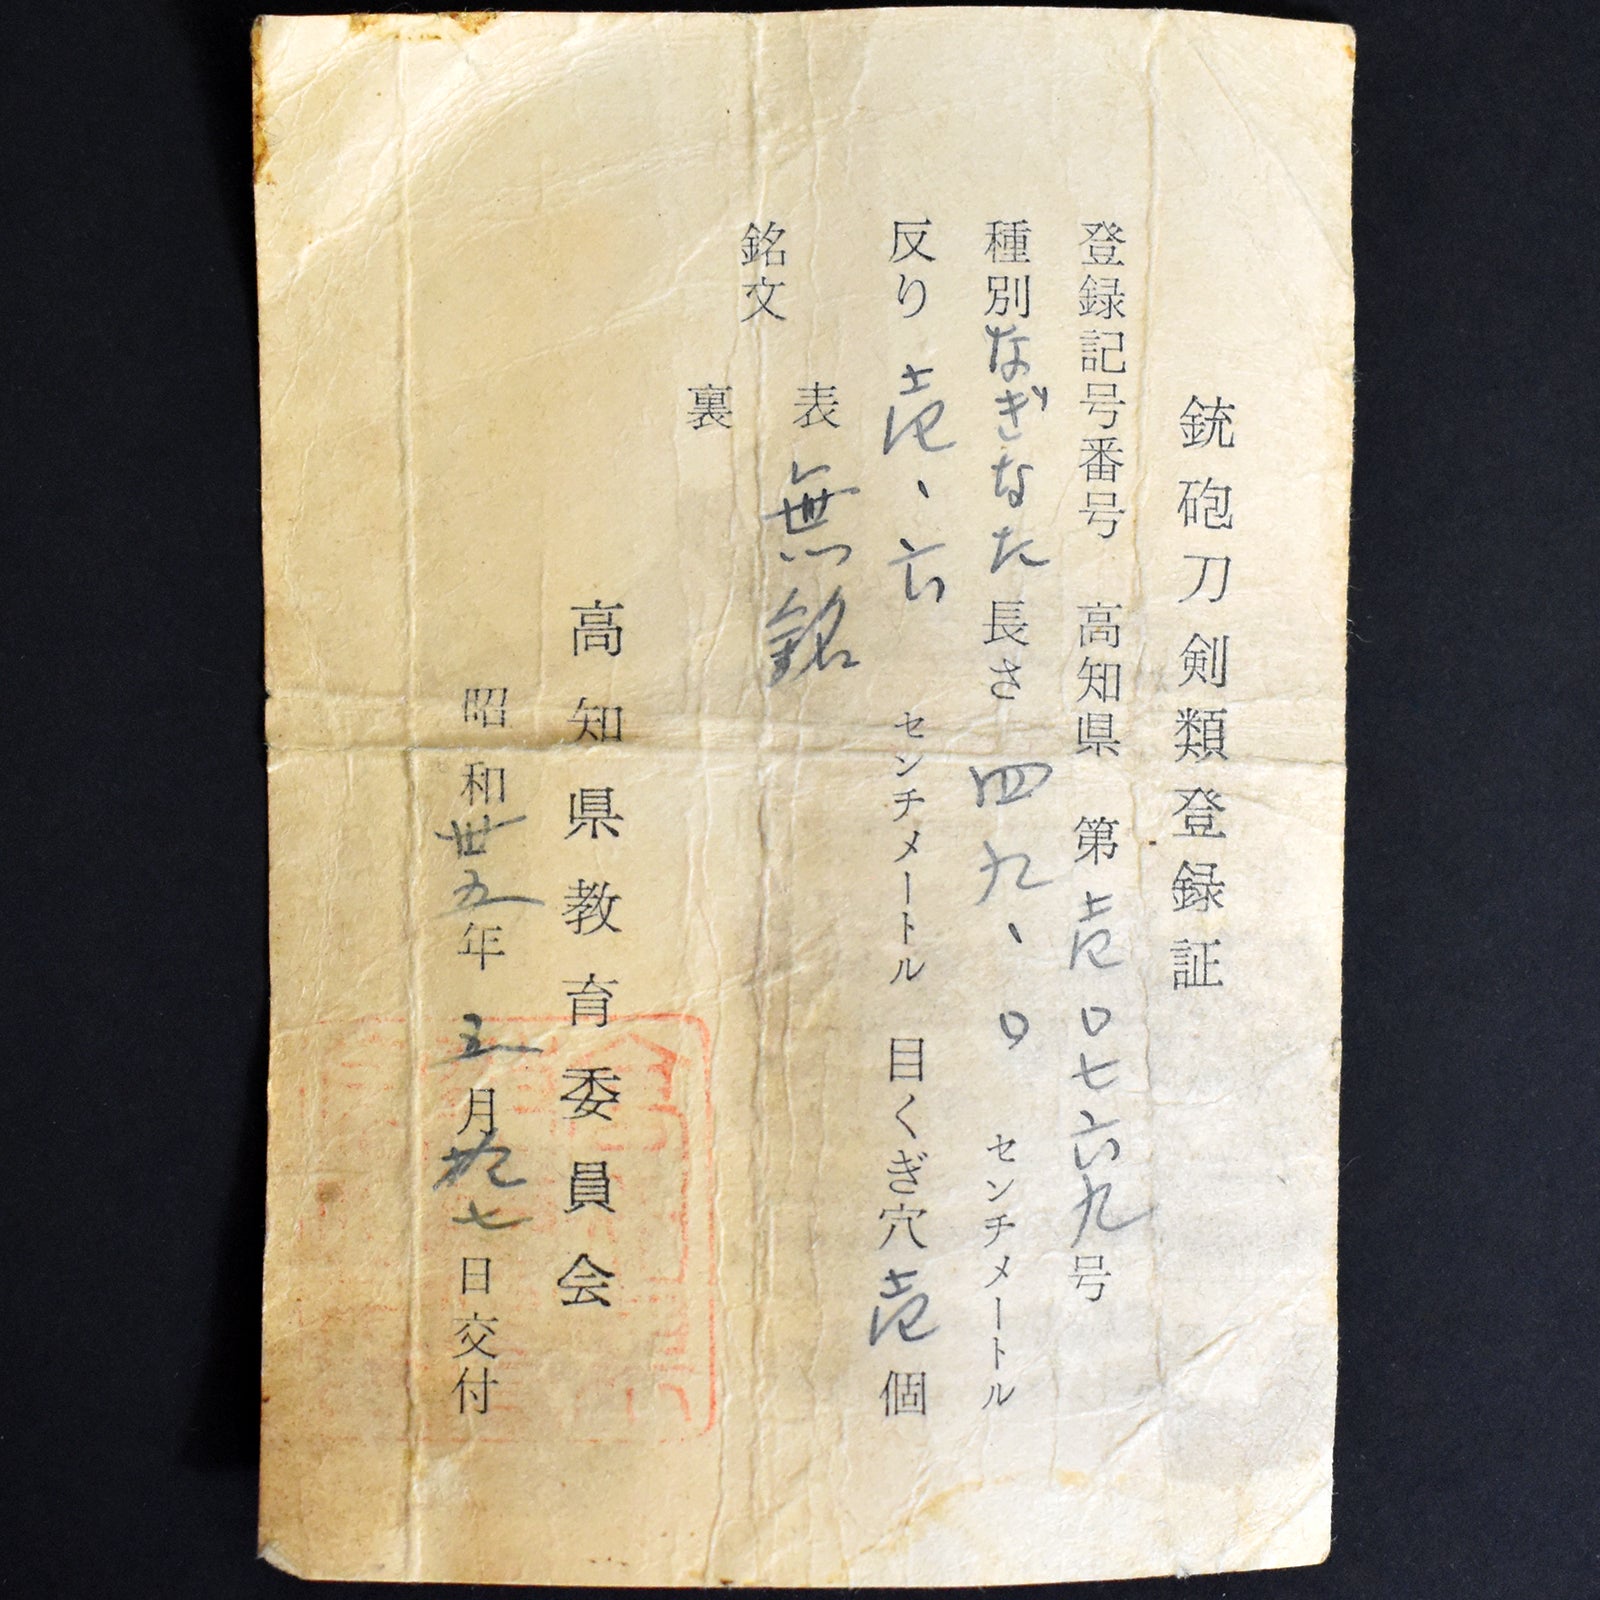 銃砲刀剣類登録証
登録記号番号 高知県 第壱〇七六九号
種別なぎなた長さ 四九、〇 センチメートル
反り 壱、六 センチメートル 目くぎ穴壱個
銘文
表 無銘
裏
高知県教育委員会
昭和卅五年 五月廿七日交付